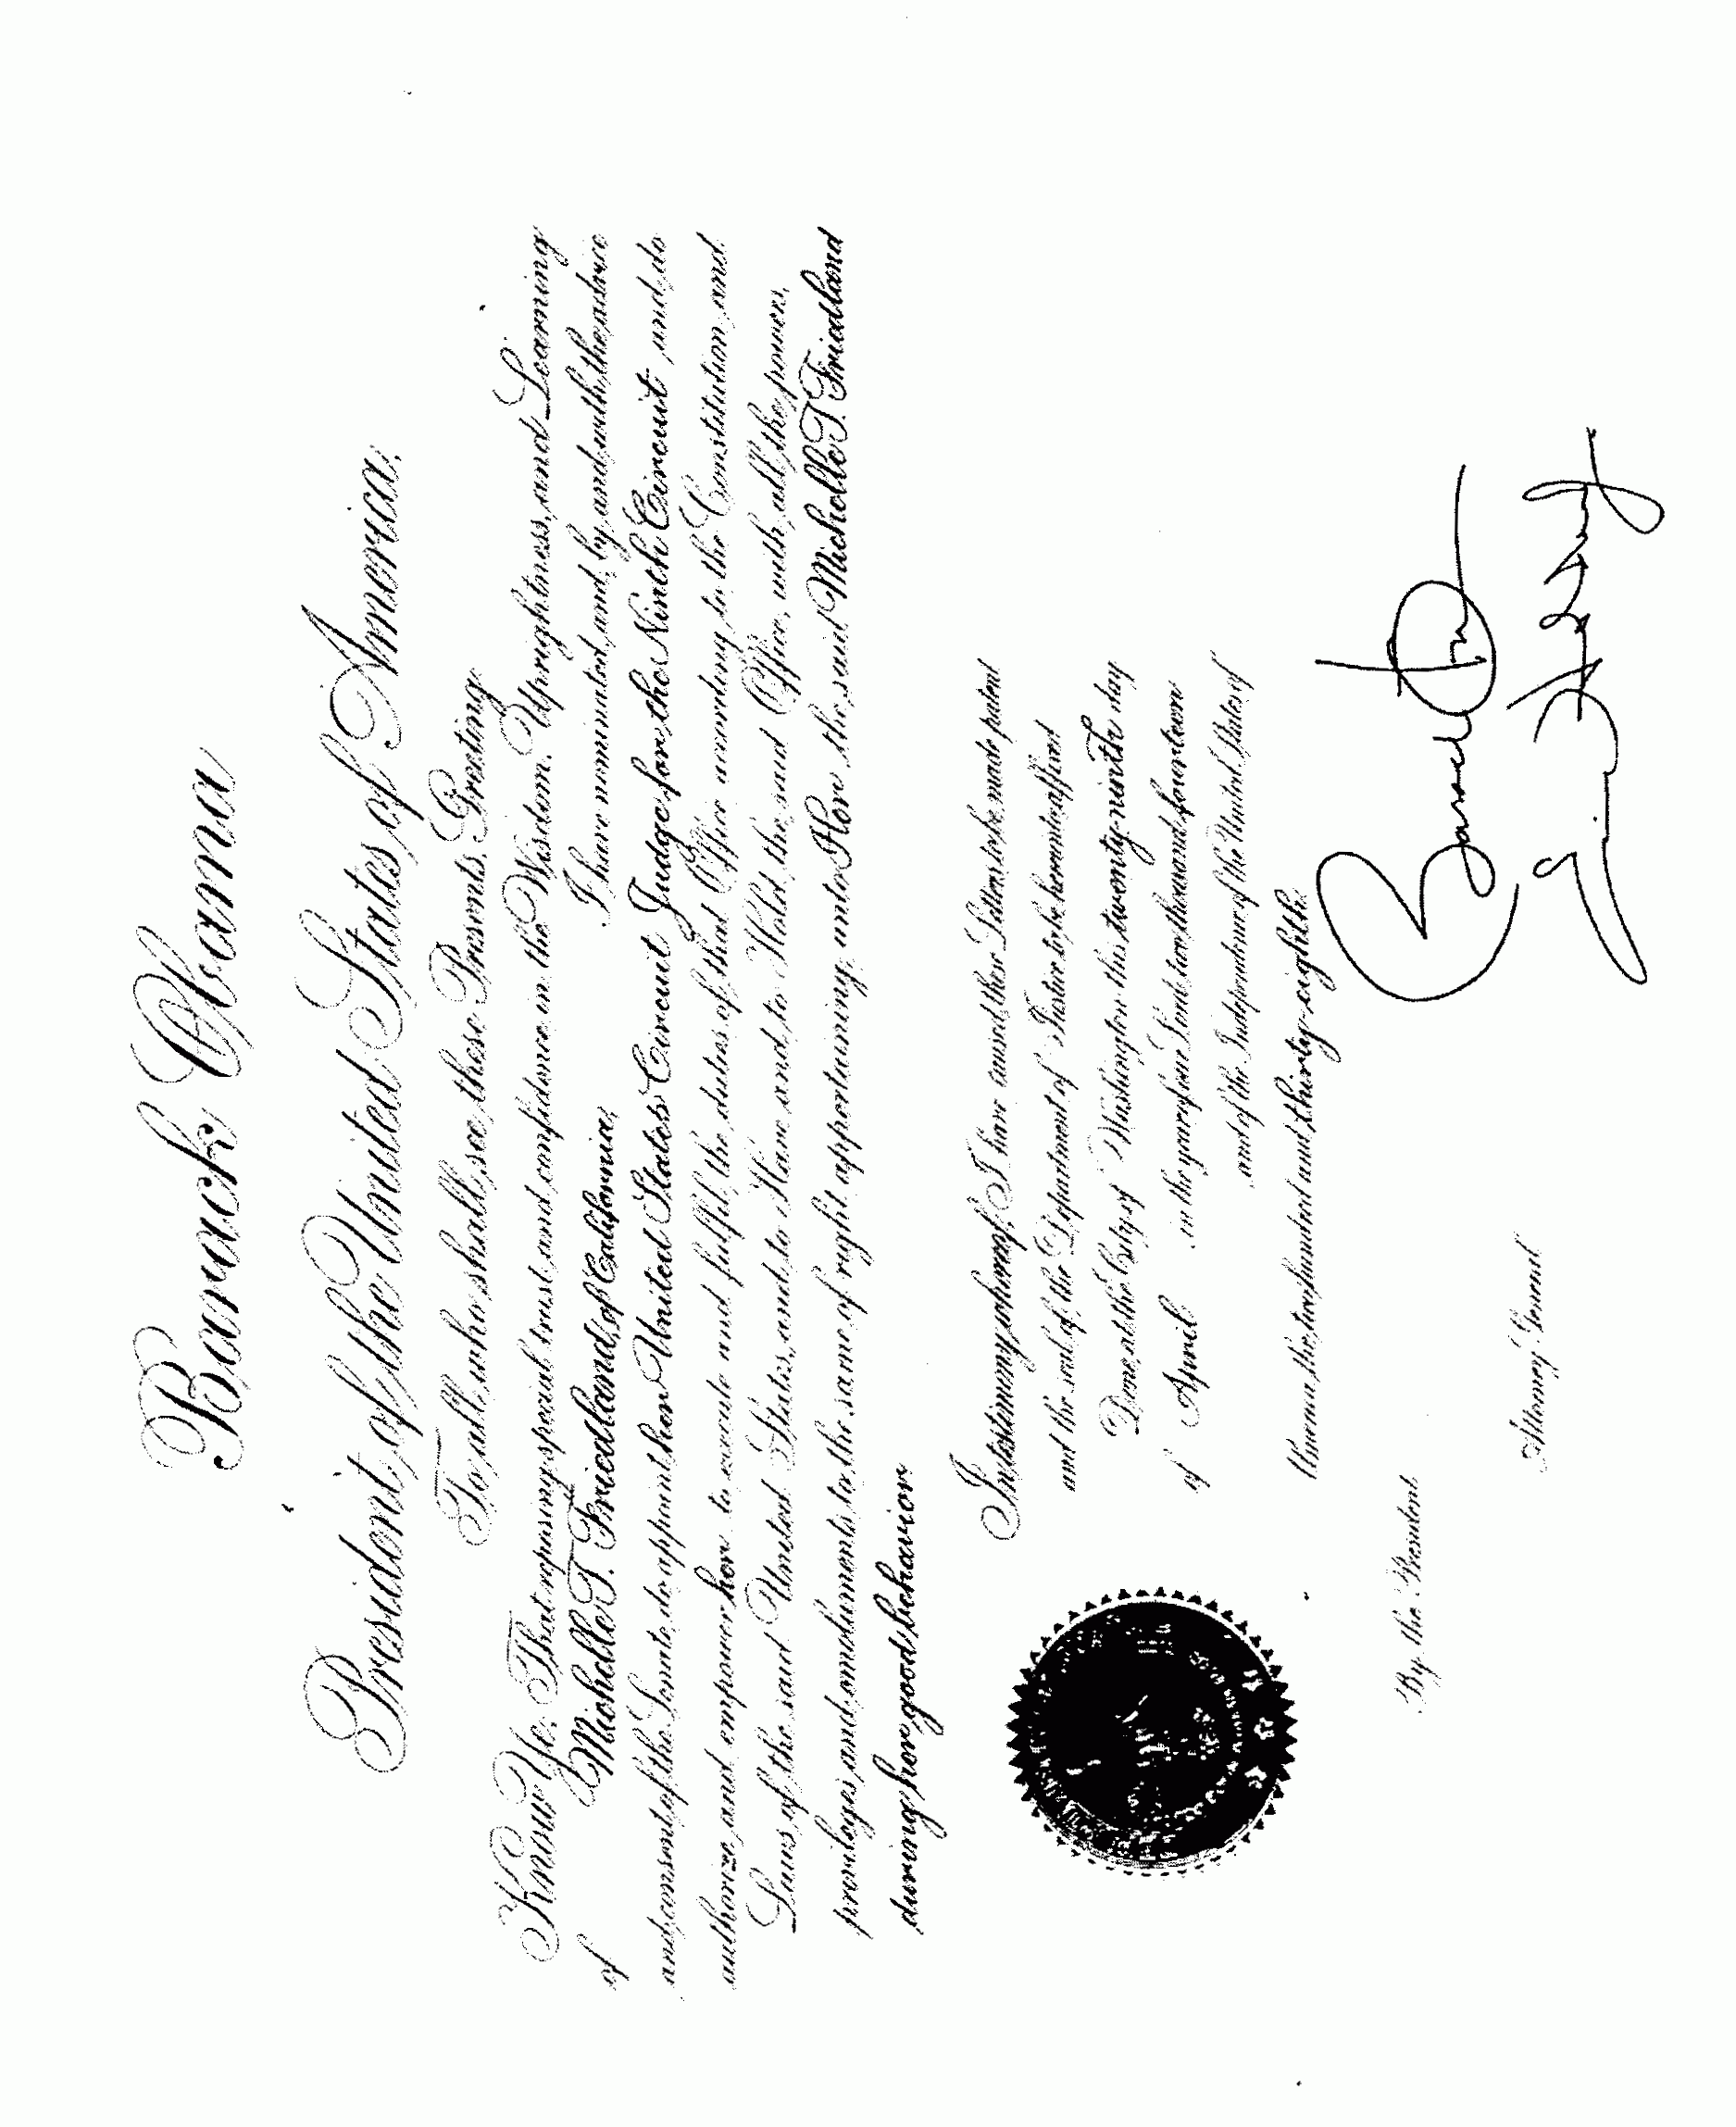 Barack Obama
President of the United States of America.
To all who shall see these Presents, Greeting
Know Ye: That reposing special trust and confidence in the Wisdom, Uprightness, and Learning
of Michelle T. Friedland, of California, I have nominated, and, by and with the advice
and consent of the Senate, do appoint her United States Circuit Judge for the Ninth Circuit and do
authorize and empower her to execute and fulfil the duties of that Office according to the Constitution and
Laws of the said United States, and to Have and to Hold the said Office, with all the powers,
privileges and emoluments to the same of right appertaining, unto Her the said Michelle T. Friedland
during her good behavior.
In testimony whereof, I have caused these Letters to be made patent
and the seal of the Department of Justice to be hereunto affixed
Done at the City of Washington this twenty-ninth day
of April in the year of our Lord two thousand fourteen
and of the Independence of the United States of
America the two hundred and thirty-eighth.
Barack Obama
By the President
Attorney General